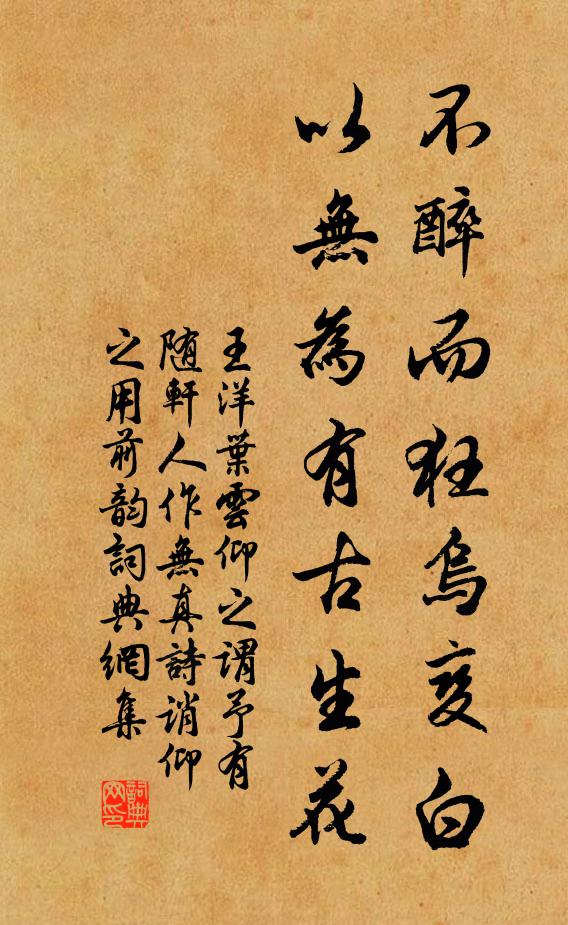 不醉而狂烏变白
以無為有古生花
王洋葉雲仰之謂予有
随軒人作無真詩誚仰
之用前韵詞典網集
詞典
网印